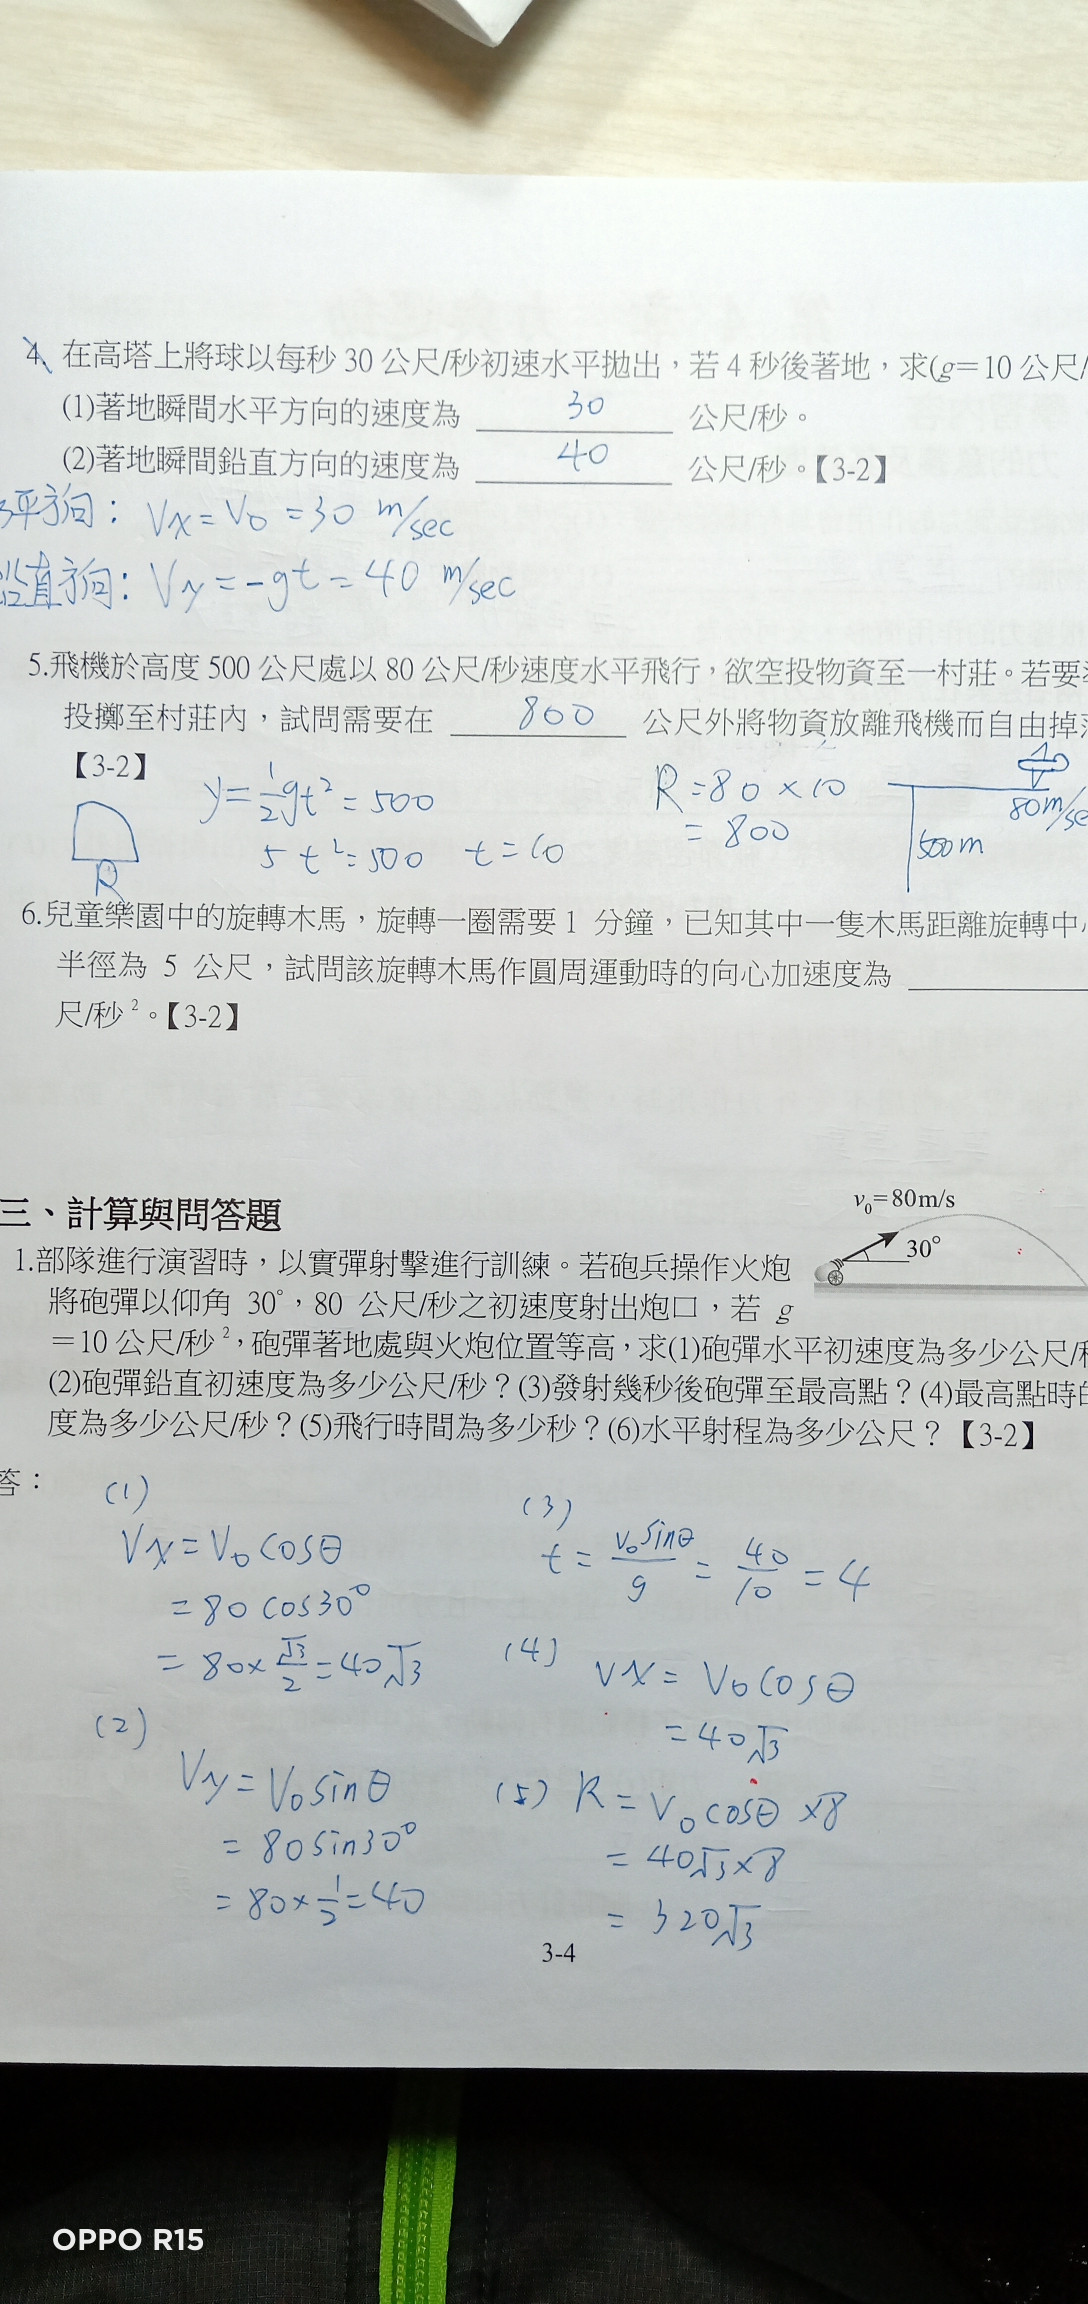 4. 在高塔上將球以每秒 30 公尺/秒初速水平拋出，若 4 秒後著地，求(g＝10 公尺/
(1)著地瞬間水平方向的速度為 30 公尺/秒。
(2)著地瞬間鉛直方向的速度為 40 公尺/秒。【3-2】
平方向：Vx = V0 = 30 m/sec
鉛直方向：Vy = -gt = 40 m/sec
5.飛機於高度 500 公尺處以 80 公尺/秒速度水平飛行，欲空投物資至一村莊。若要
投擲至村莊內，試問需要在 800 公尺外將物資放離飛機而自由掉
【3-2】
y = 1/2 gt² = 500
5 t² = 500 t = 10
R
R = 80 × 10
= 800
80m/se
500m
6.兒童樂園中的旋轉木馬，旋轉一圈需要 1 分鐘，已知其中一隻木馬距離旋轉中
半徑為 5 公尺，試問該旋轉木馬作圓周運動時的向心加速度為
尺/秒²。【3-2】
三、計算與問答題
v₀＝80m/s
30°
1.部隊進行演習時，以實彈射擊進行訓練。若砲兵操作火炮
將砲彈以仰角 30°，80 公尺/秒之初速度射出炮口，若 g
＝10 公尺/秒²，砲彈著地處與火炮位置等高，求(1)砲彈水平初速度為多少公尺/
(2)砲彈鉛直初速度為多少公尺/秒？(3)發射幾秒後砲彈至最高點？(4)最高點時
度為多少公尺/秒？(5)飛行時間為多少秒？(6)水平射程為多少公尺？【3-2】
答：
(1)
Vx = V0 cosθ
= 80 cos30°
= 80 × √3/2 = 40√3
(2)
Vy = V0 sinθ
= 80 sin30°
= 80 × 1/2 = 40
(3)
t = V0 sinθ/g = 40/10 = 4
(4)
Vx = V0 cosθ
= 40√3
(5) R = V0 cosθ ×8
= 40√3 × 8
= 320√3
3-4
OPPO R15